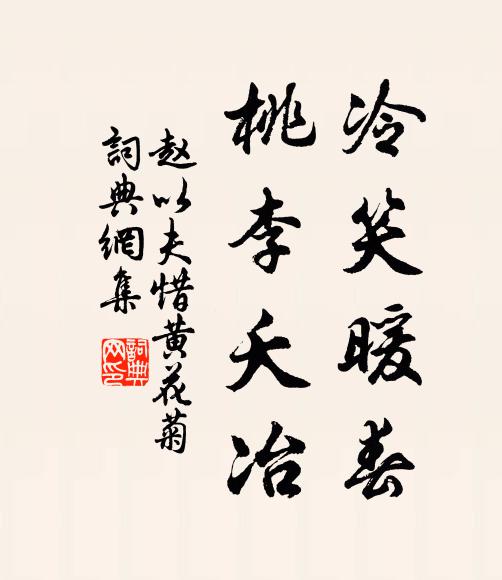 冷笑暖春
桃李夭冶
赵以夫惜黄花菊
詞典網集
詞典
网印